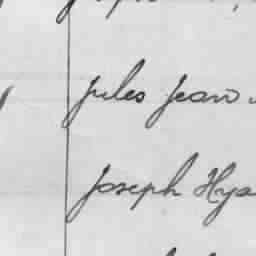 Jules Jean
Joseph Hya